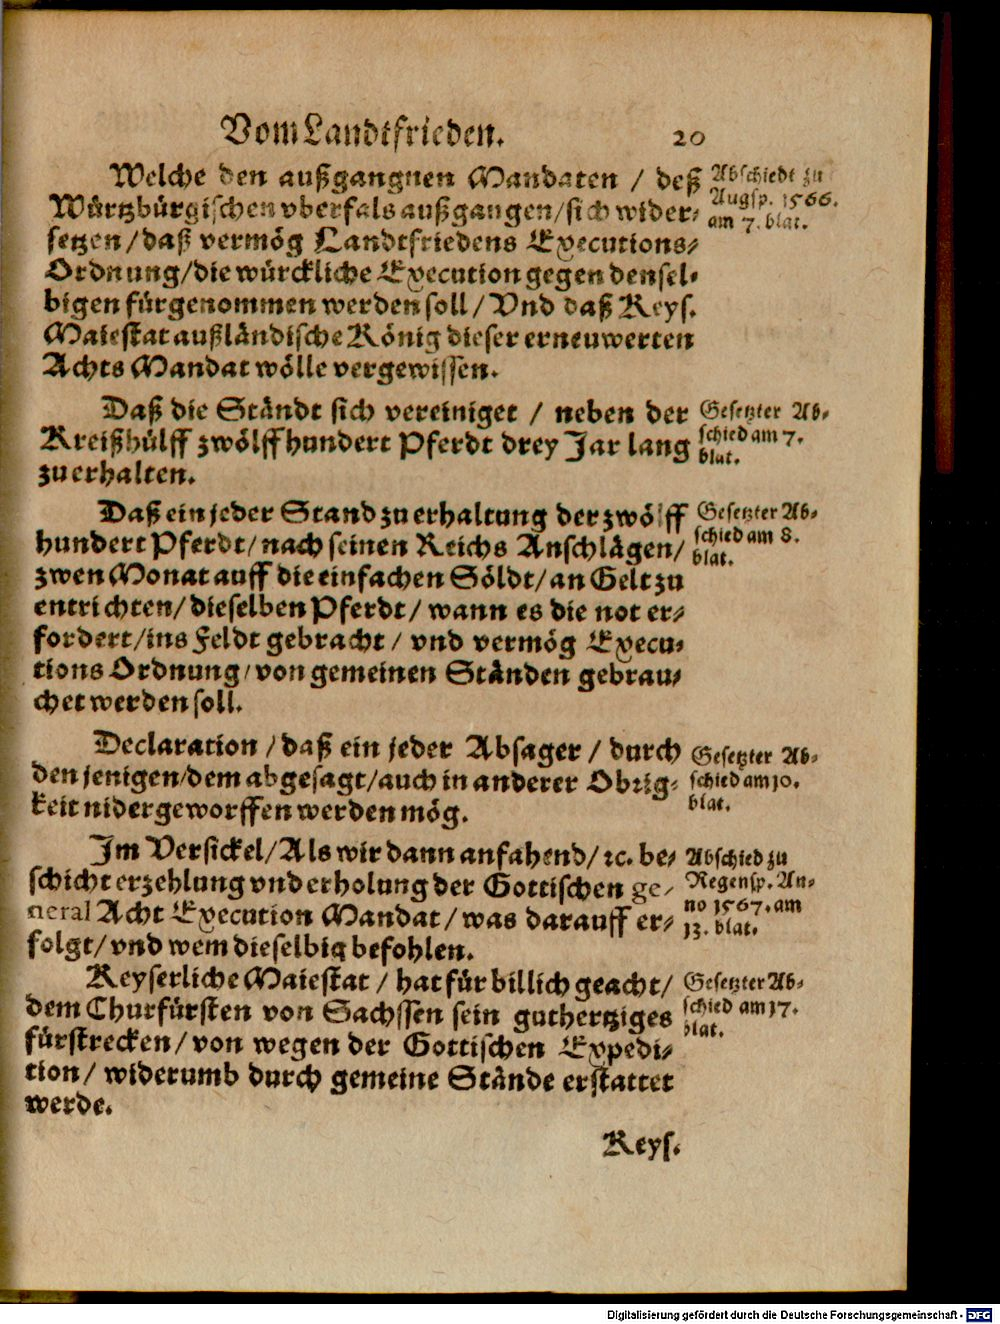 Vom Landtfrieden. 20
Welche den außgangnen Mandaten / deß
Würtzbürgischen vberfals außgangen/sich wider⸗
setzen/daß vermög Landtfriedens Executions⸗
Ordnung/die würckliche Execution gegen densel⸗
bigen fürgenommen werden soll/Vnd daß Keys.
Maiestat außländische König dieser erneuwerten
Achts Mandat wölle vergewissen.
Abschiedt zu
Augsp. 1566.
am 7. blat.
Daß die Ständt sich vereiniget / neben der
Kreißhülff zwölffhundert Pferdt drey Jar lang
zuerhalten.
Gesetzter Ab⸗
schied am 7.
blat.
Daß ein jeder Stand zu erhaltung der zwölff
hundert Pferdt/nach seinen Reichs Anschlägen/
zwen Monat auff die einfachen Söldt/an Gelt zu
entrichten/dieselben Pferdt/wann es die not er⸗
fordert/ins Feldt gebracht/ vnd vermög Execu⸗
tions Ordnung/von gemeinen Ständen gebrau⸗
chet werden soll.
Gesetzter Ab⸗
schied am 8.
blat.
Declaration /daß ein jeder Absager / durch
den jenigen/dem abgesagt/auch in anderer Obrig⸗
keit nidergeworffen werden mög.
Gesetzter Ab⸗
schied am 10.
blat.
Im Versickel/Als wir dann anfahend/ ꝛc. be⸗
schicht erzehlung vnd erholung der Gottischen ge⸗
neral Acht Execution Mandat/was darauff er⸗
folgt/vnd wem dieselbig befohlen.
Abschied zu
Regensp. An⸗
no 1567. am
13. blat.
Keyserliche Maiestat / hat für billich geacht/
dem Churfürsten von Sachssen sein guthertziges
fürstrecken/von wegen der Gottischen Expedi⸗
tion/ widerumb durch gemeine Stände erstattet
werde.
Gesetzter Ab⸗
schied am 17.
blat.
Keys.
Digitalisierung gefördert durch die Deutsche Forschungsgemeinschaft - DFG